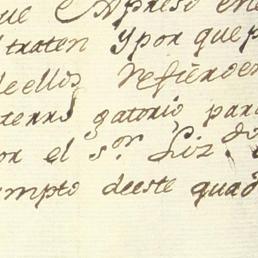 que expreso en
traten y por que p
de ellos refieren
terro gatorio para
or el s.or Liz.do
mpto deeste quad